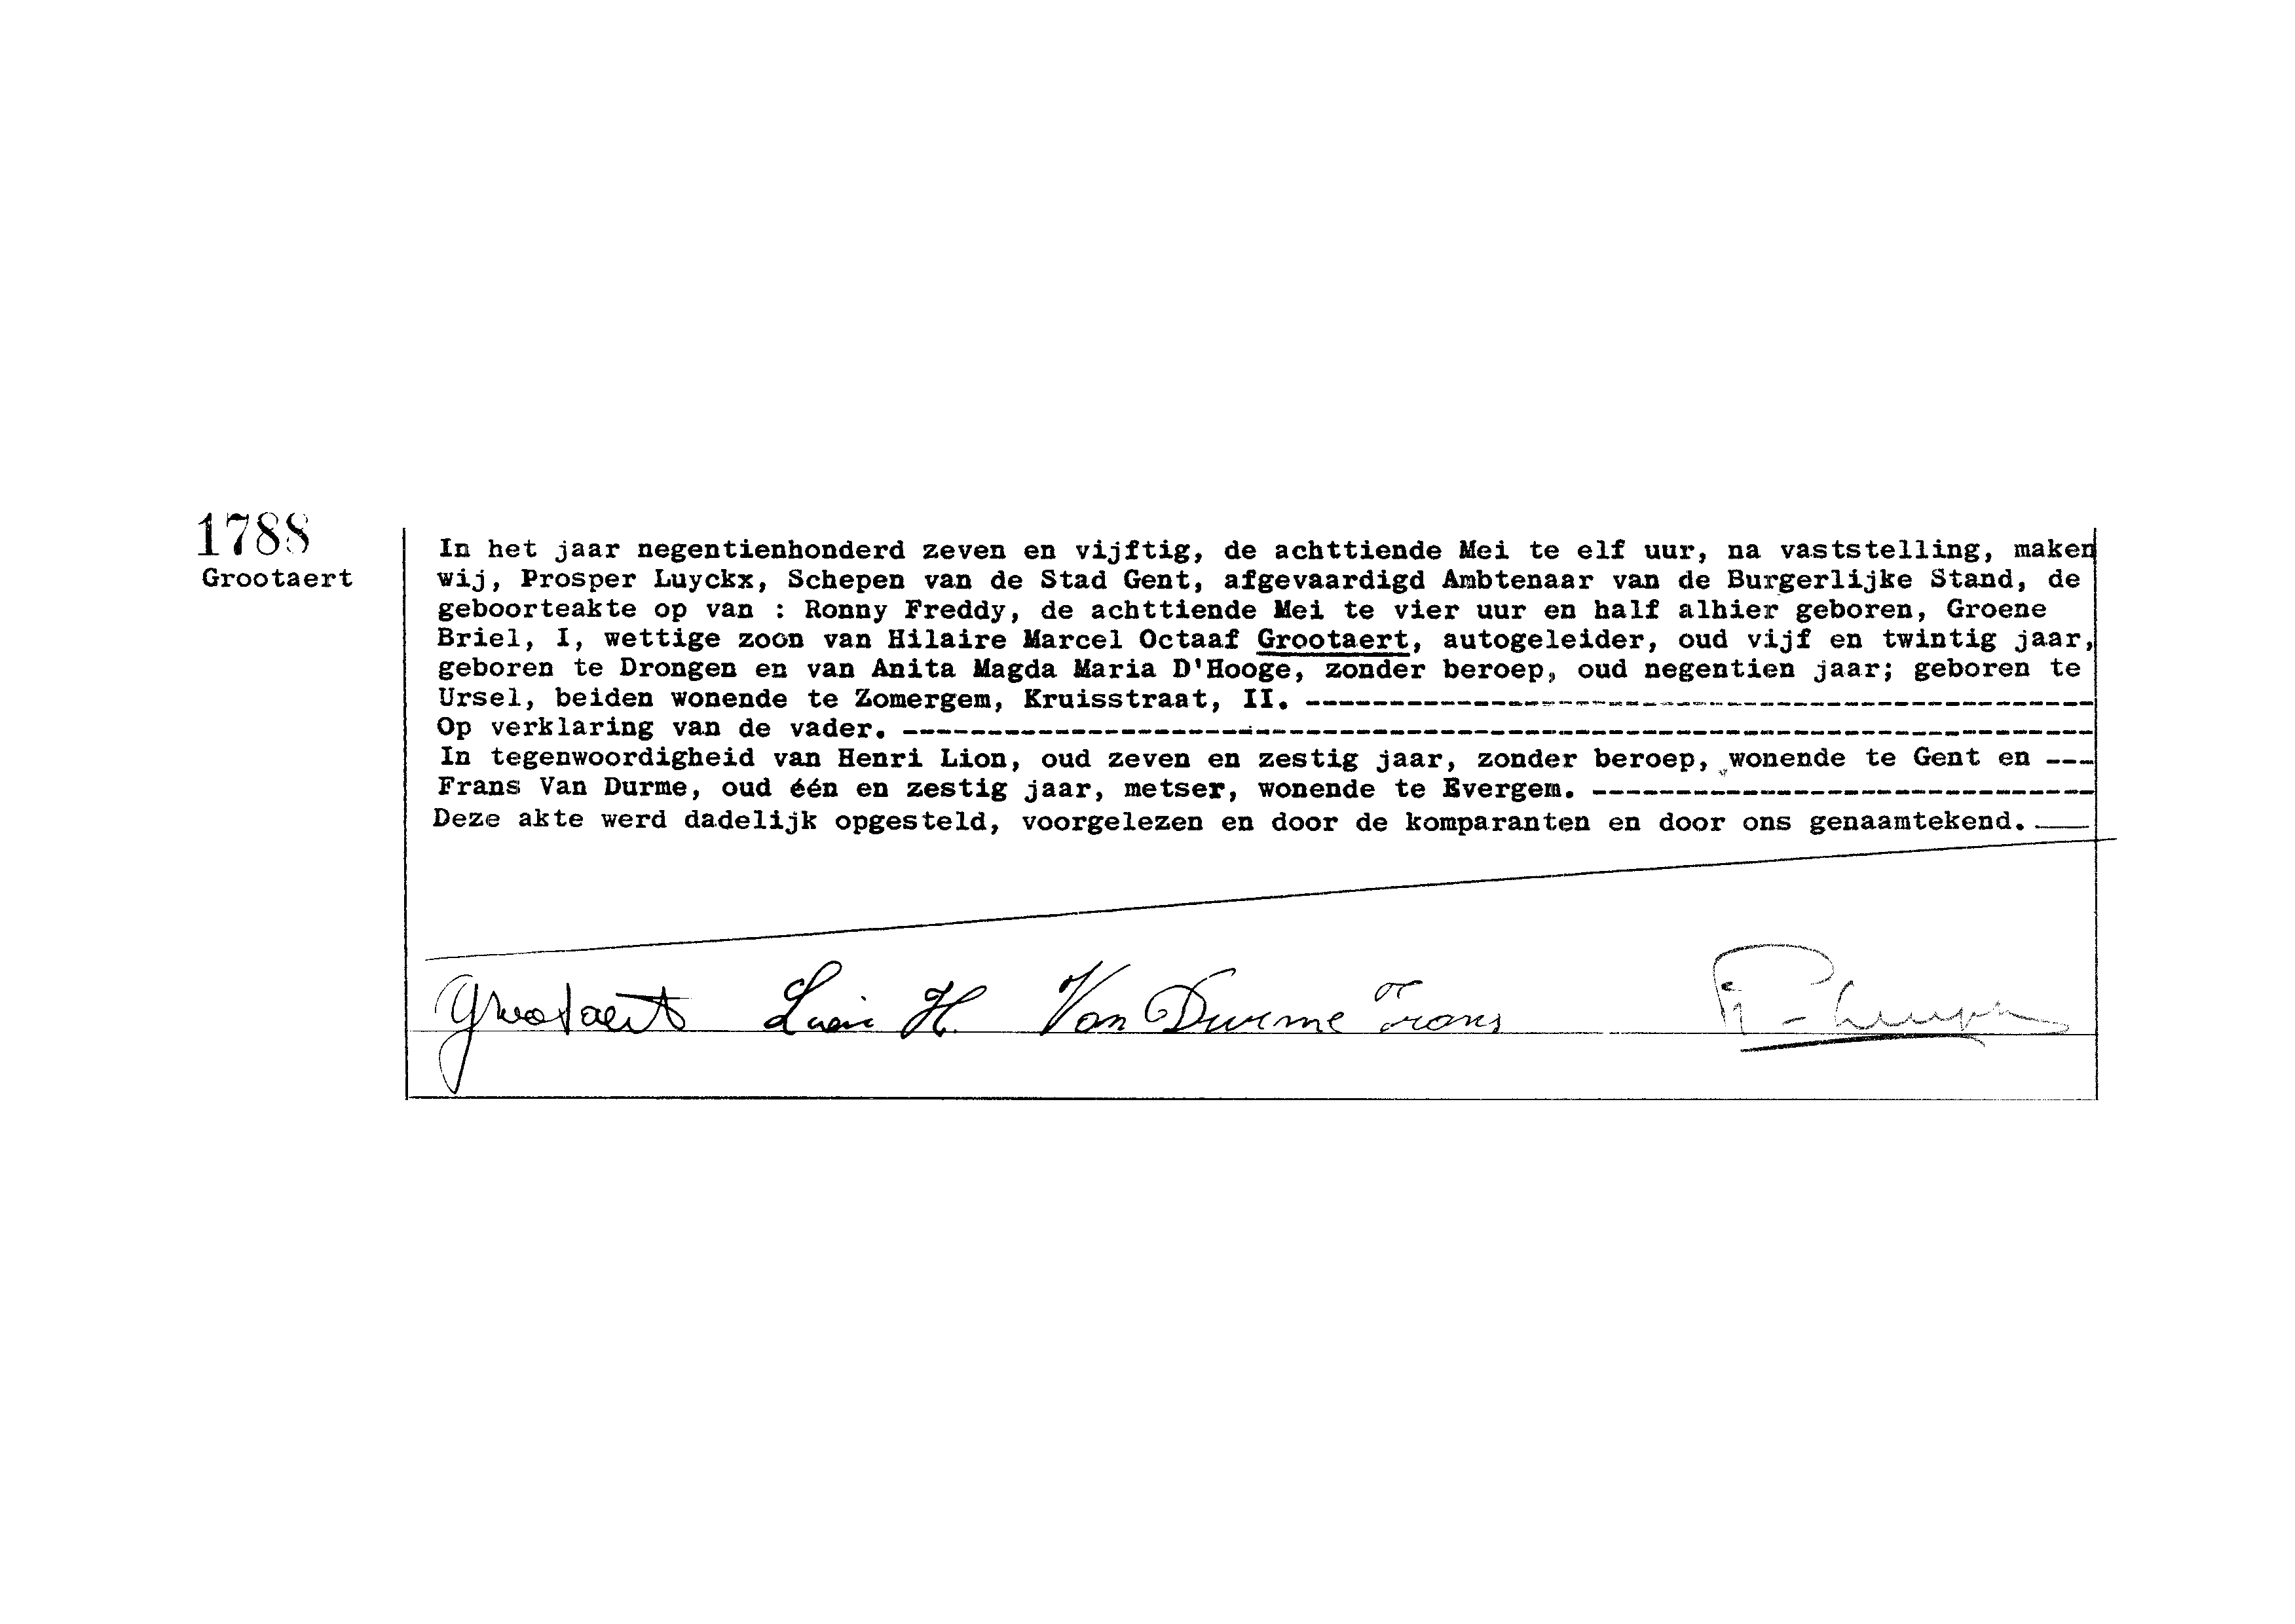 1788
Grootaert
In het jaar negentienhonderd zeven en vijftig, de achttiende Mei te elf uur, na vaststelling, maken
wij, Prosper Luyckx, Schepen van de Stad Gent, afgevaardigd Ambtenaar van de Burgerlijke Stand, de
geboorteakte op van : Ronny Freddy, de achttiende Mei te vier uur en half alhier geboren, Groene
Briel, I, wettige zoon van Hilaire Marcel Octaaf Grootaert, autogeleider, oud vijf en twintig jaar,
geboren te Drongen en van Anita Magda Maria D'Hooge, zonder beroep, oud negentien jaar; geboren te
Ursel, beiden wonende te Zomergem, Kruisstraat, II. ----------------------------------------------
Op verklaring van de vader. ----------------------------------------------------------------------
In tegenwoordigheid van Henri Lion, oud zeven en zestig jaar, zonder beroep, wonende te Gent en ---
Frans Van Durme, oud één en zestig jaar, metser, wonende te Evergem. ------------------------------
Deze akte werd dadelijk opgesteld, voorgelezen en door de komparanten en door ons genaamtekend. ___
Grootaert Lion H. Van Durme Frans